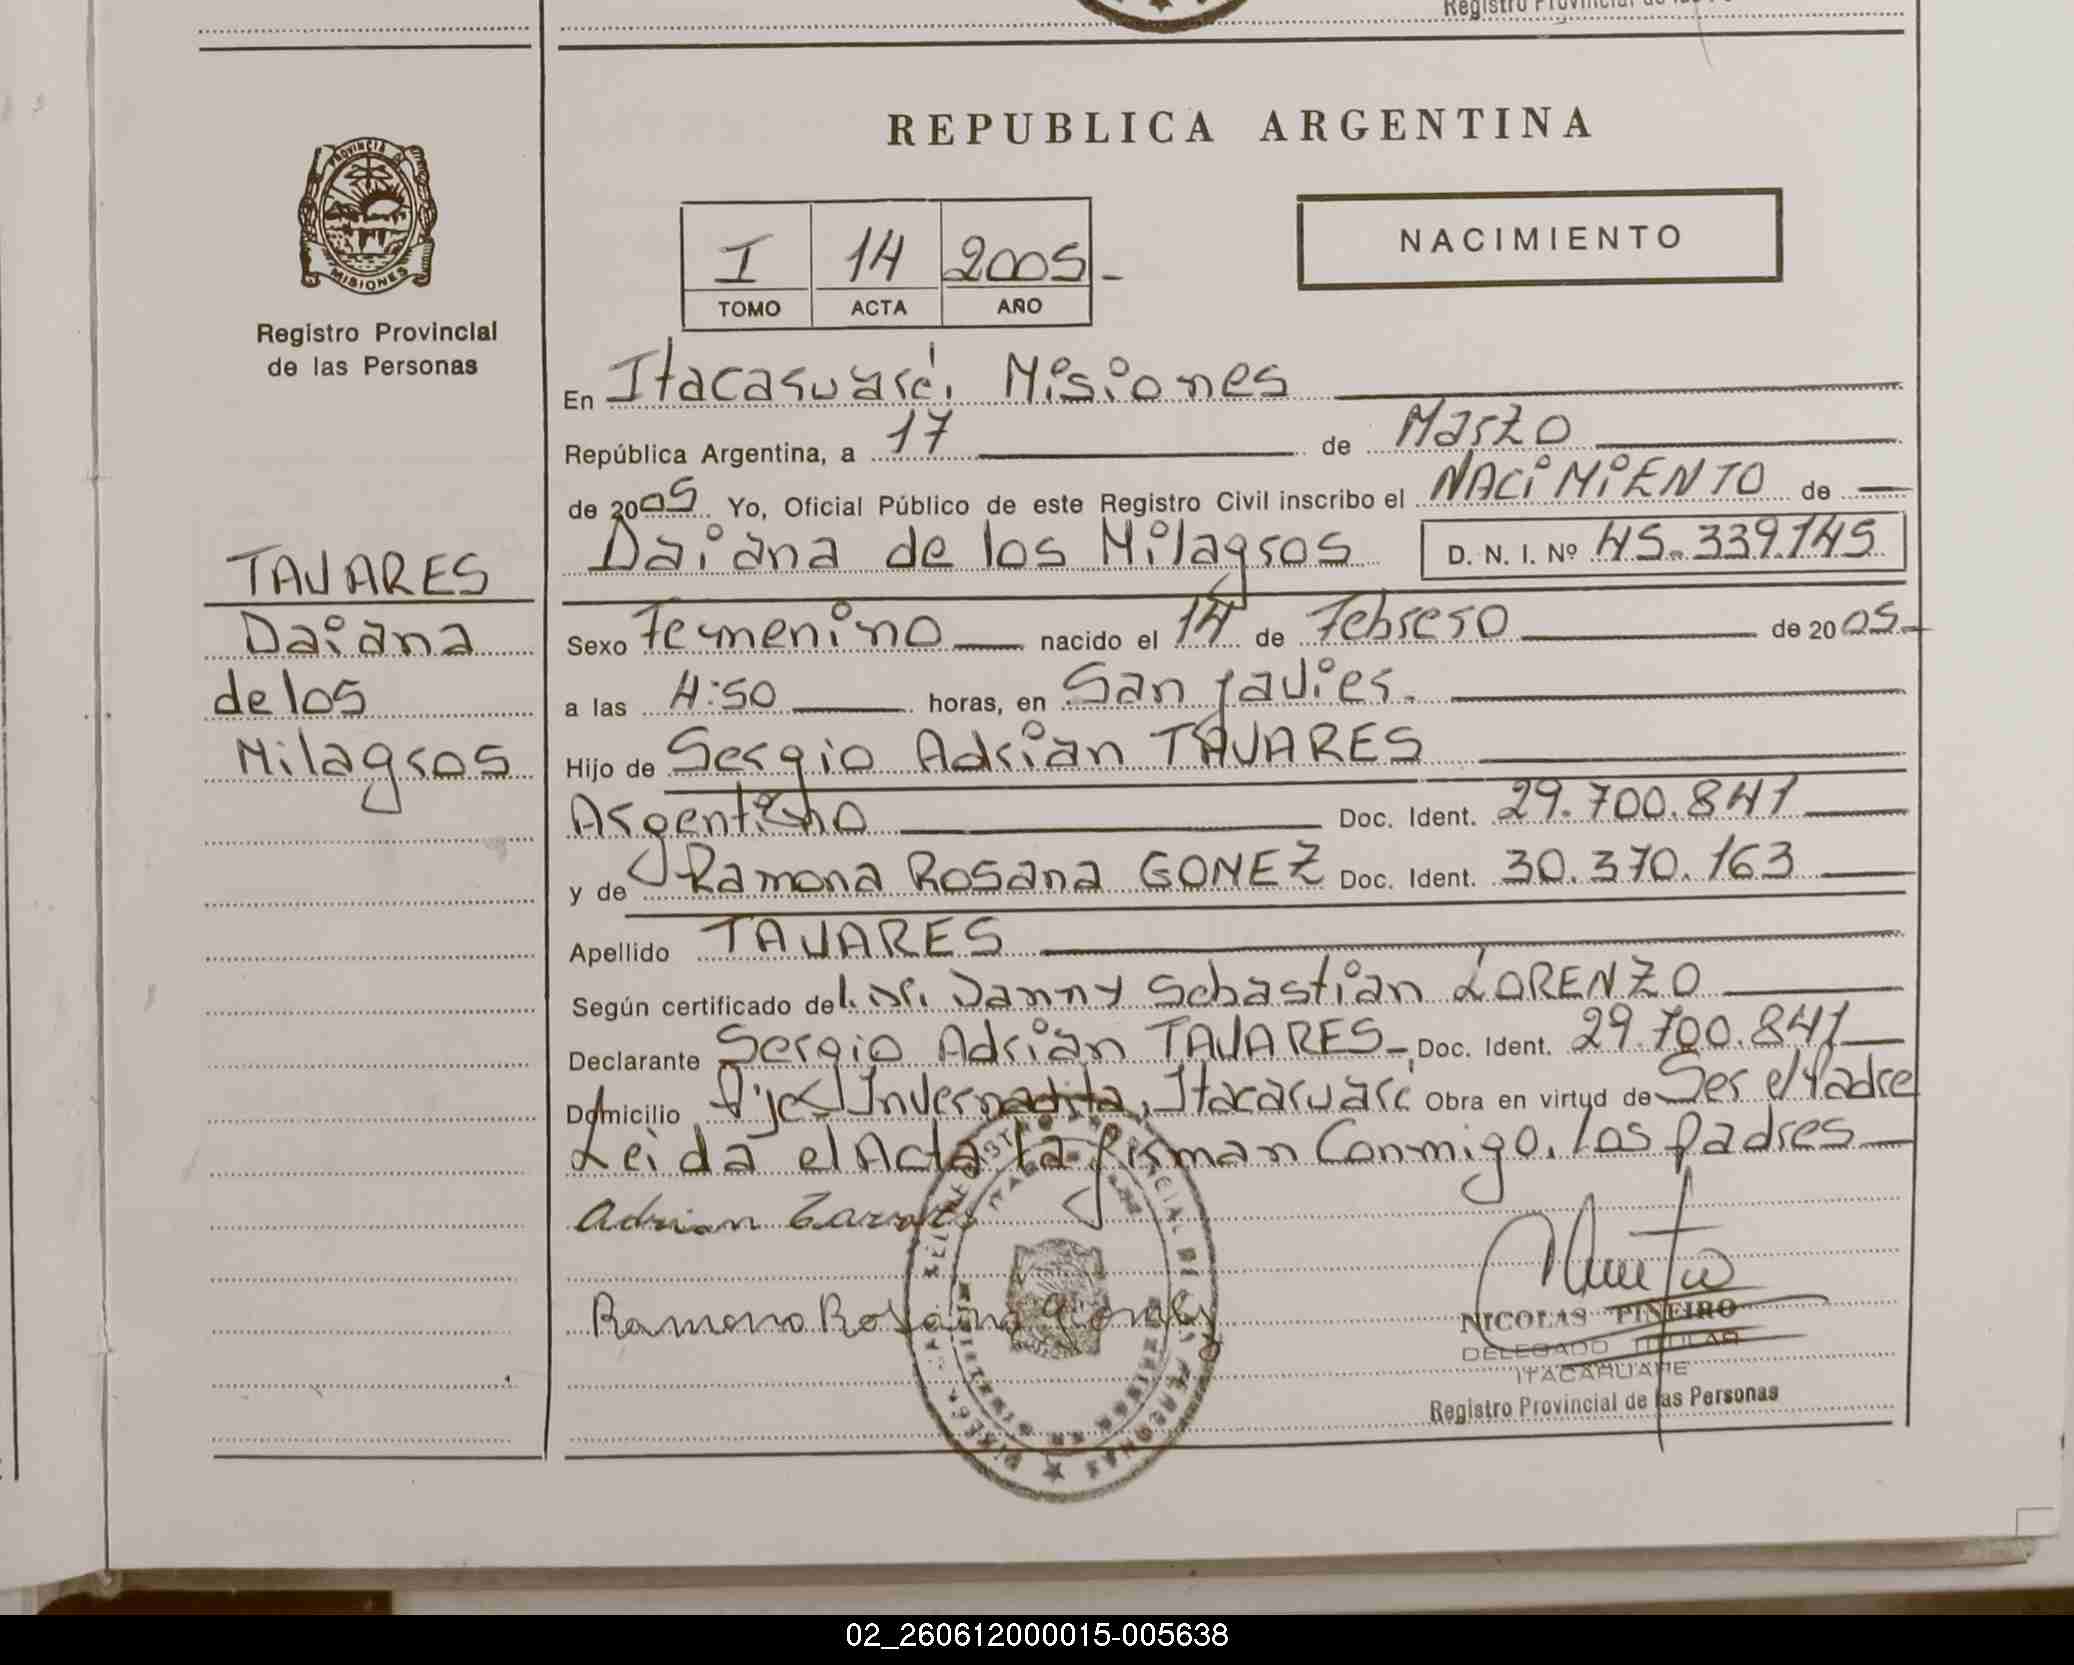 Registro Provincial de las
REPUBLICA ARGENTINA
PROVINCIA DE
MISIONES
Registro Provincial
de las Personas
I 14 2005-
TOMO ACTA AÑO
NACIMIENTO
En Itacaruaré, Misiones
República Argentina, a 17 de Marzo
de 2005 Yo, Oficial Público de este Registro Civil inscribo el NACIMIENTO de
Daiana de los Milagros D. N. I. Nº 45.339.145
TAVARES
Daiana
de los
Milagros
Sexo Femenino nacido el 14 de Febrero de 2005-
a las 4:50 horas, en San Javier.
Hijo de Sergio Adrian TAVARES
Argentino Doc. Ident. 29.700.841
y de Ramona Rosana GOMEZ Doc. Ident. 30.370.163
Apellido TAVARES
Según certificado del. Dr. Danny Sebastián LORENZO
Declarante Sergio Adrián TAVARES-, Doc. Ident. 29.700.841
Domicilio Invernadita, Itacaruaré Obra en virtud de Ser el Padre
Leida el Acta la firman Conmigo, los padres
Adrian
Ramona Rosana
NICOLAS PIÑEIRO
DELEGADO TITULAR
ITACARUARE
Registro Provincial de las Personas
02_260612000015-005638